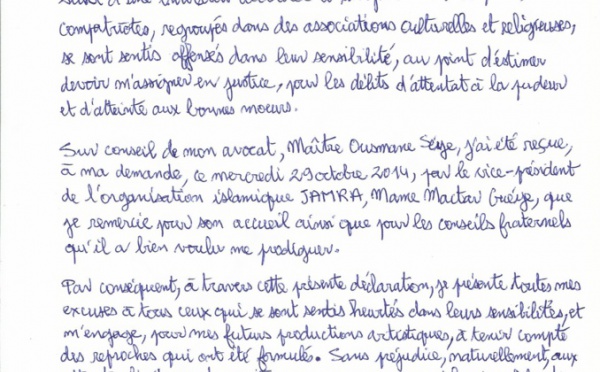 compatriotes, regroupés dans des associations culturelles et religieuses,
se sont sentis offensés dans leur sensibilité, au point d'éstimer
devoir m'assigner en justice, pour les délits d'attentat à la pudeur
et d'atteinte aux bonnes moeurs.
Sur conseil de mon avocat, Maître Ousmane Séye, j'ai été reçue,
à ma demande, ce mercredi 29 octobre 2014, par le vice-président
de l'organisation islamique JAMRA, Mame Mactar Guèye, que
je remercie pour son accueil ainsi que pour les conseils fraternels
qu'il a bien voulu me prodiguer.
Par conséquent, à travers cette présente déclaration, je présente toutes mes
excuses à tous ceux qui se sont sentis heurtés dans leurs sensibilités, et
m'engage, pour mes futurs productions artistiques, à tenir compte
des reproches qui ont été formulés. Sans préjudice, naturellement, aux